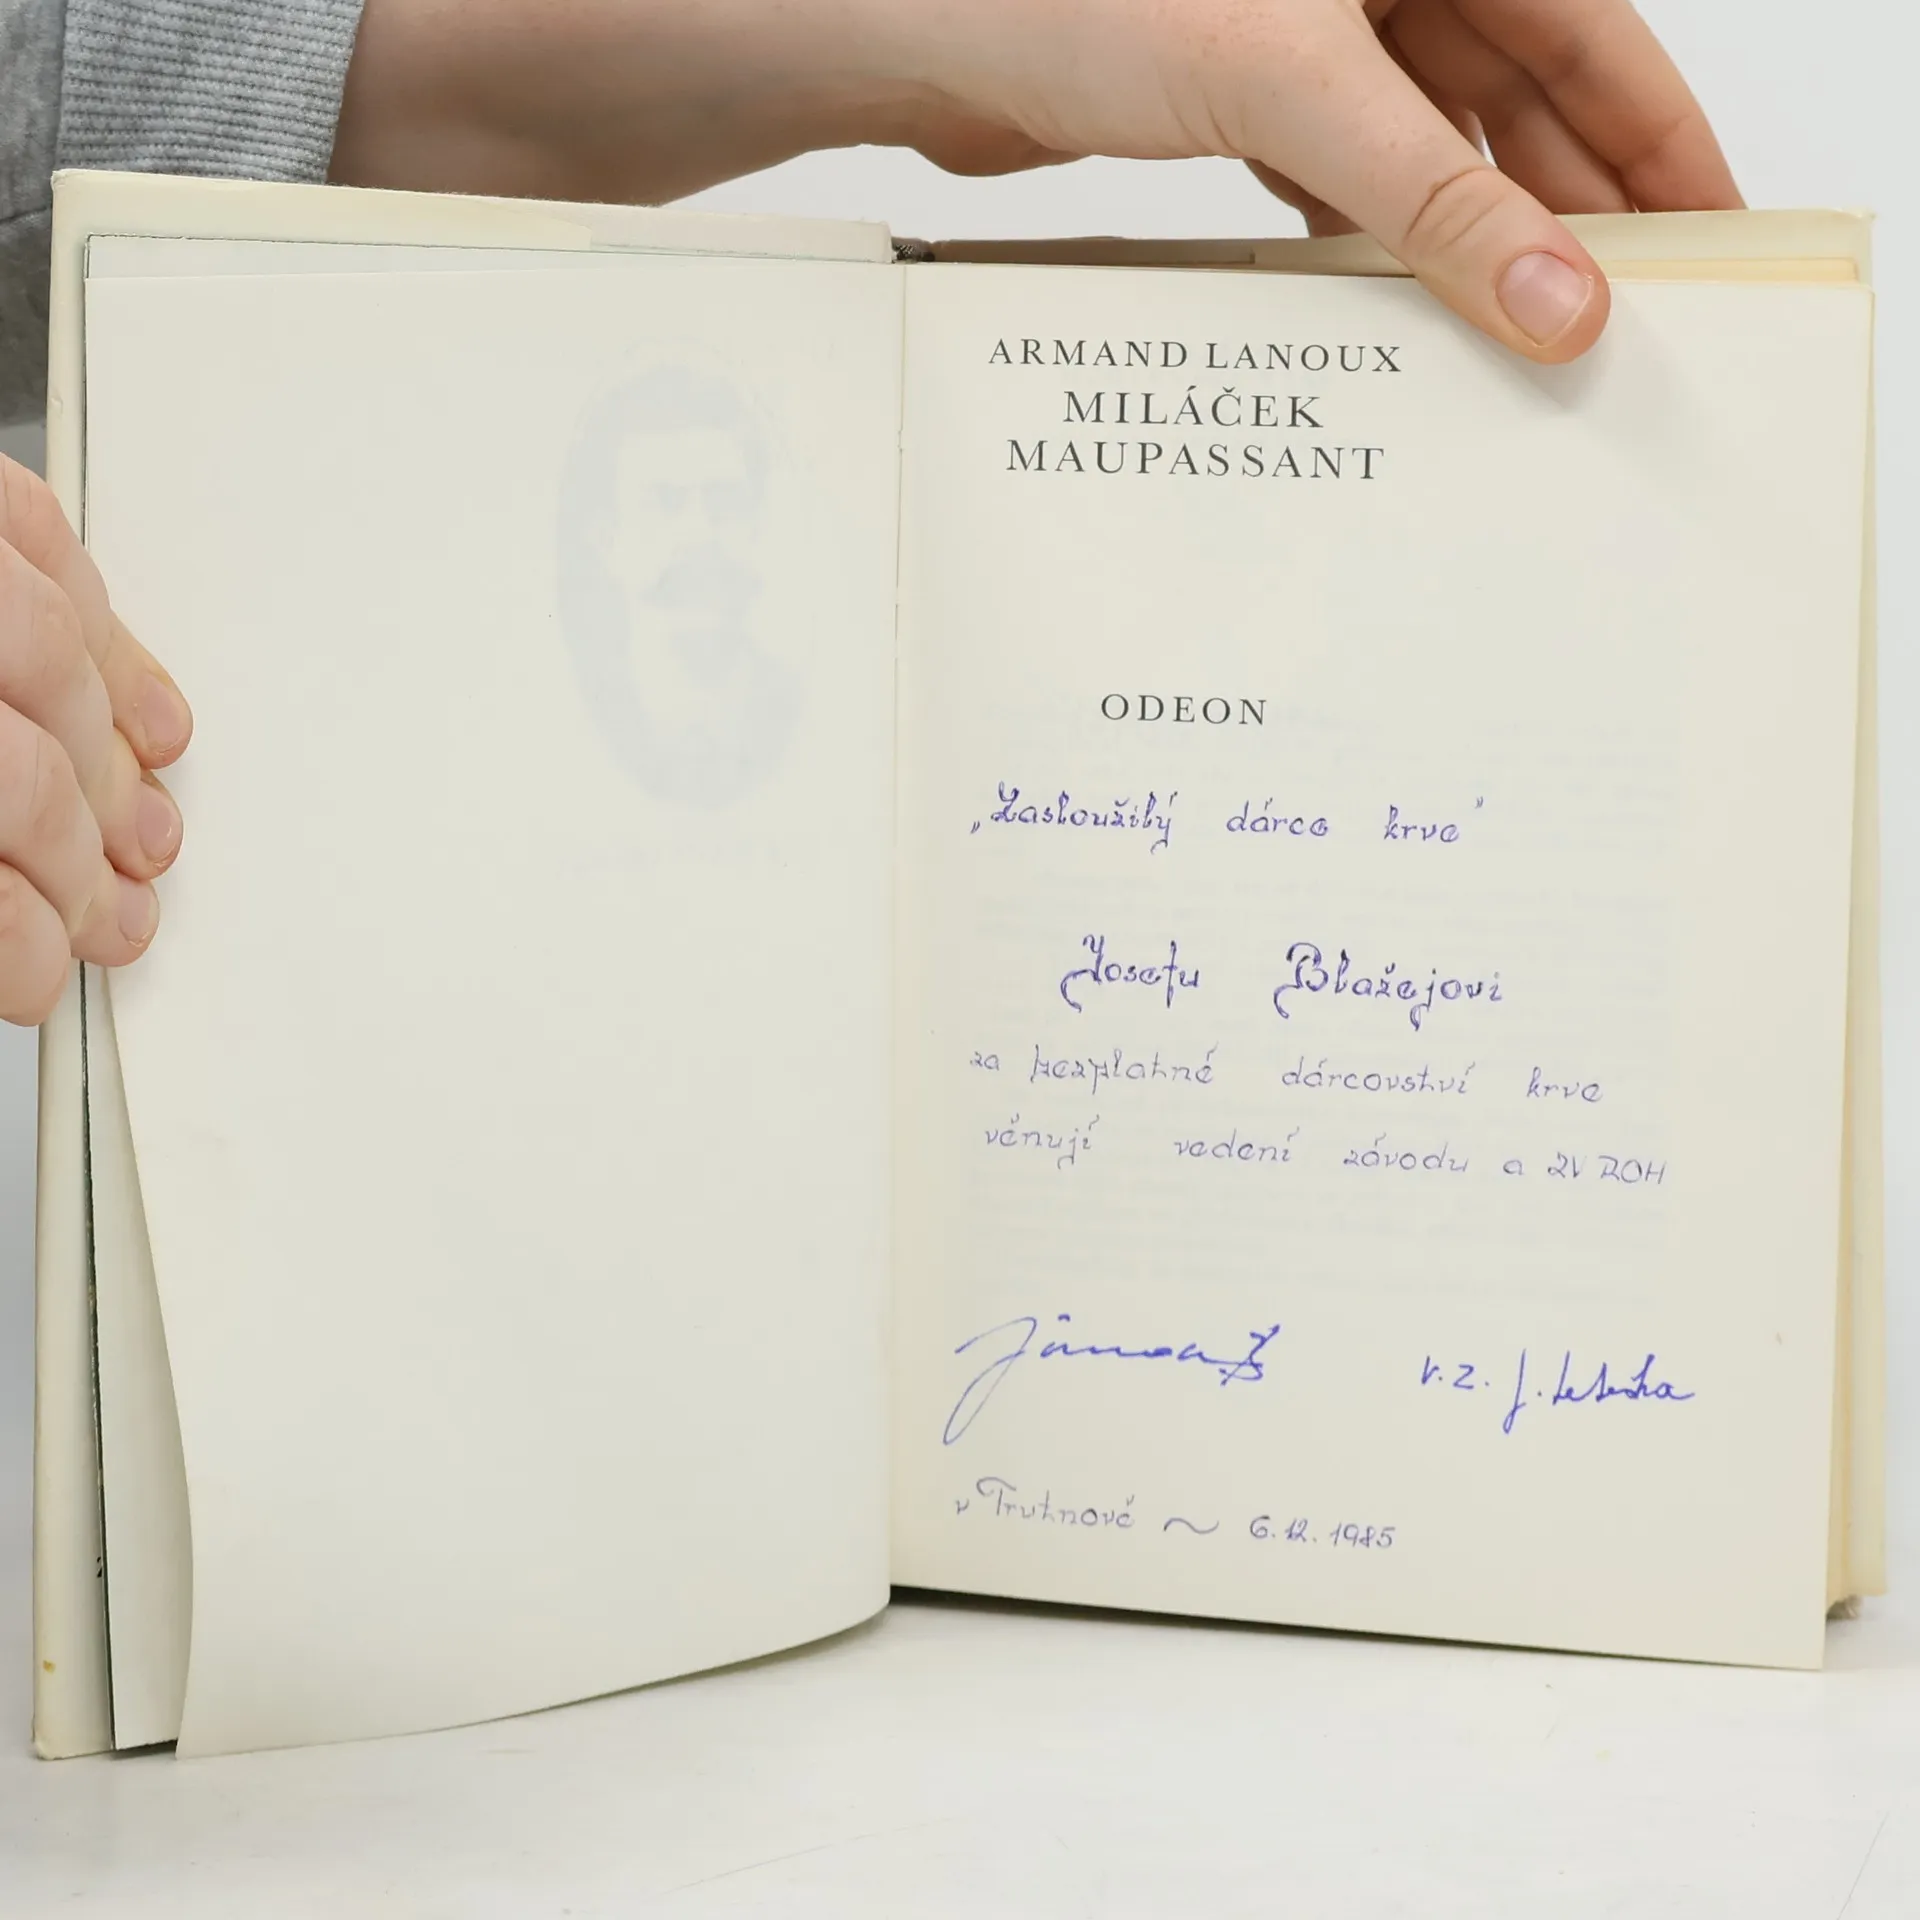 ARMAND LANOUX
MILÁČEK
MAUPASSANT
ODEON
„Zasloužilý dárce krve"
Josefu Blažejovi
za bezplatné dárcovství krve
věnují vedení závodu a ZV ROH
v. z. J.
v Trutnově ~ 6. 12. 1985